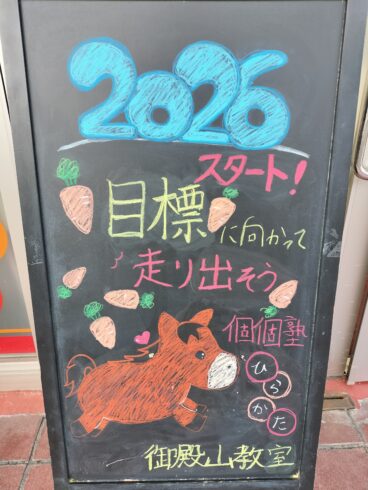 2026
スタート!
目標に向かって
走り出そう
個個塾
ひらかた
御殿山教室